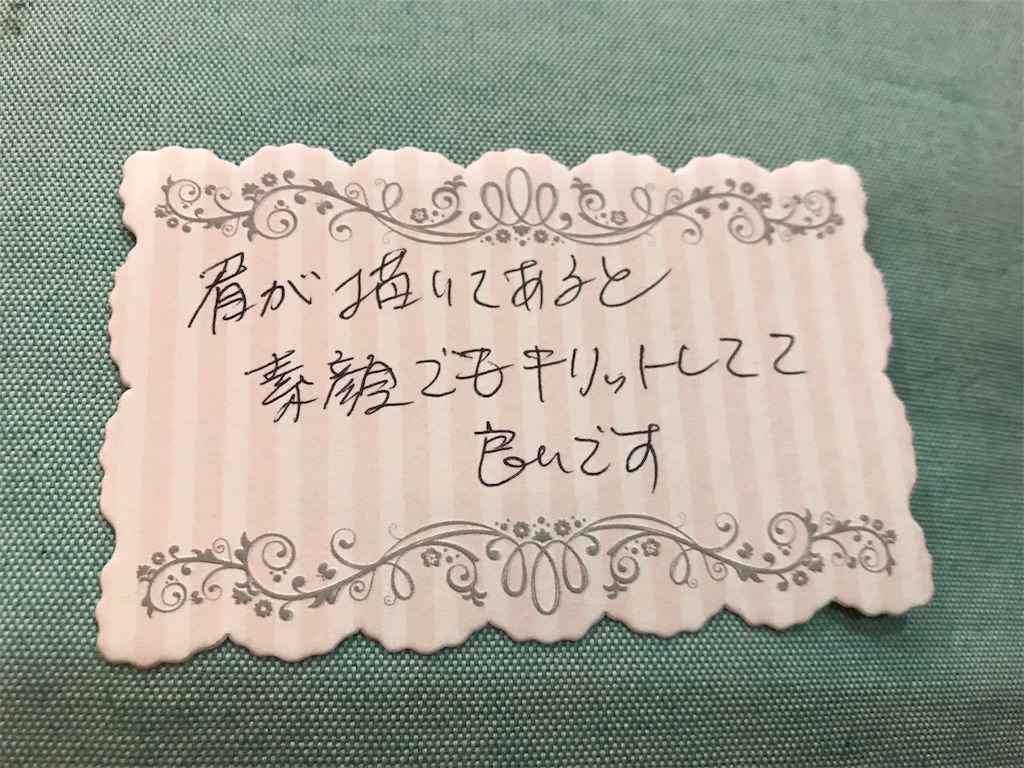 眉が描いてあると
素顔でもキリットしてて
良いです